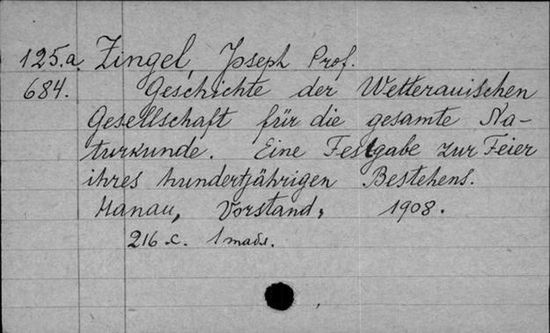 125.a. Zingel, Joseph Prof.
684. Geschichte der Wetterauischen
Gesellschaft für die gesamte Na-
turkunde. Eine Festgabe zur Feier
ihres hundertjährigen Bestehens.
Hanau, Vorstand, 1908.
216 c. 1 mads.